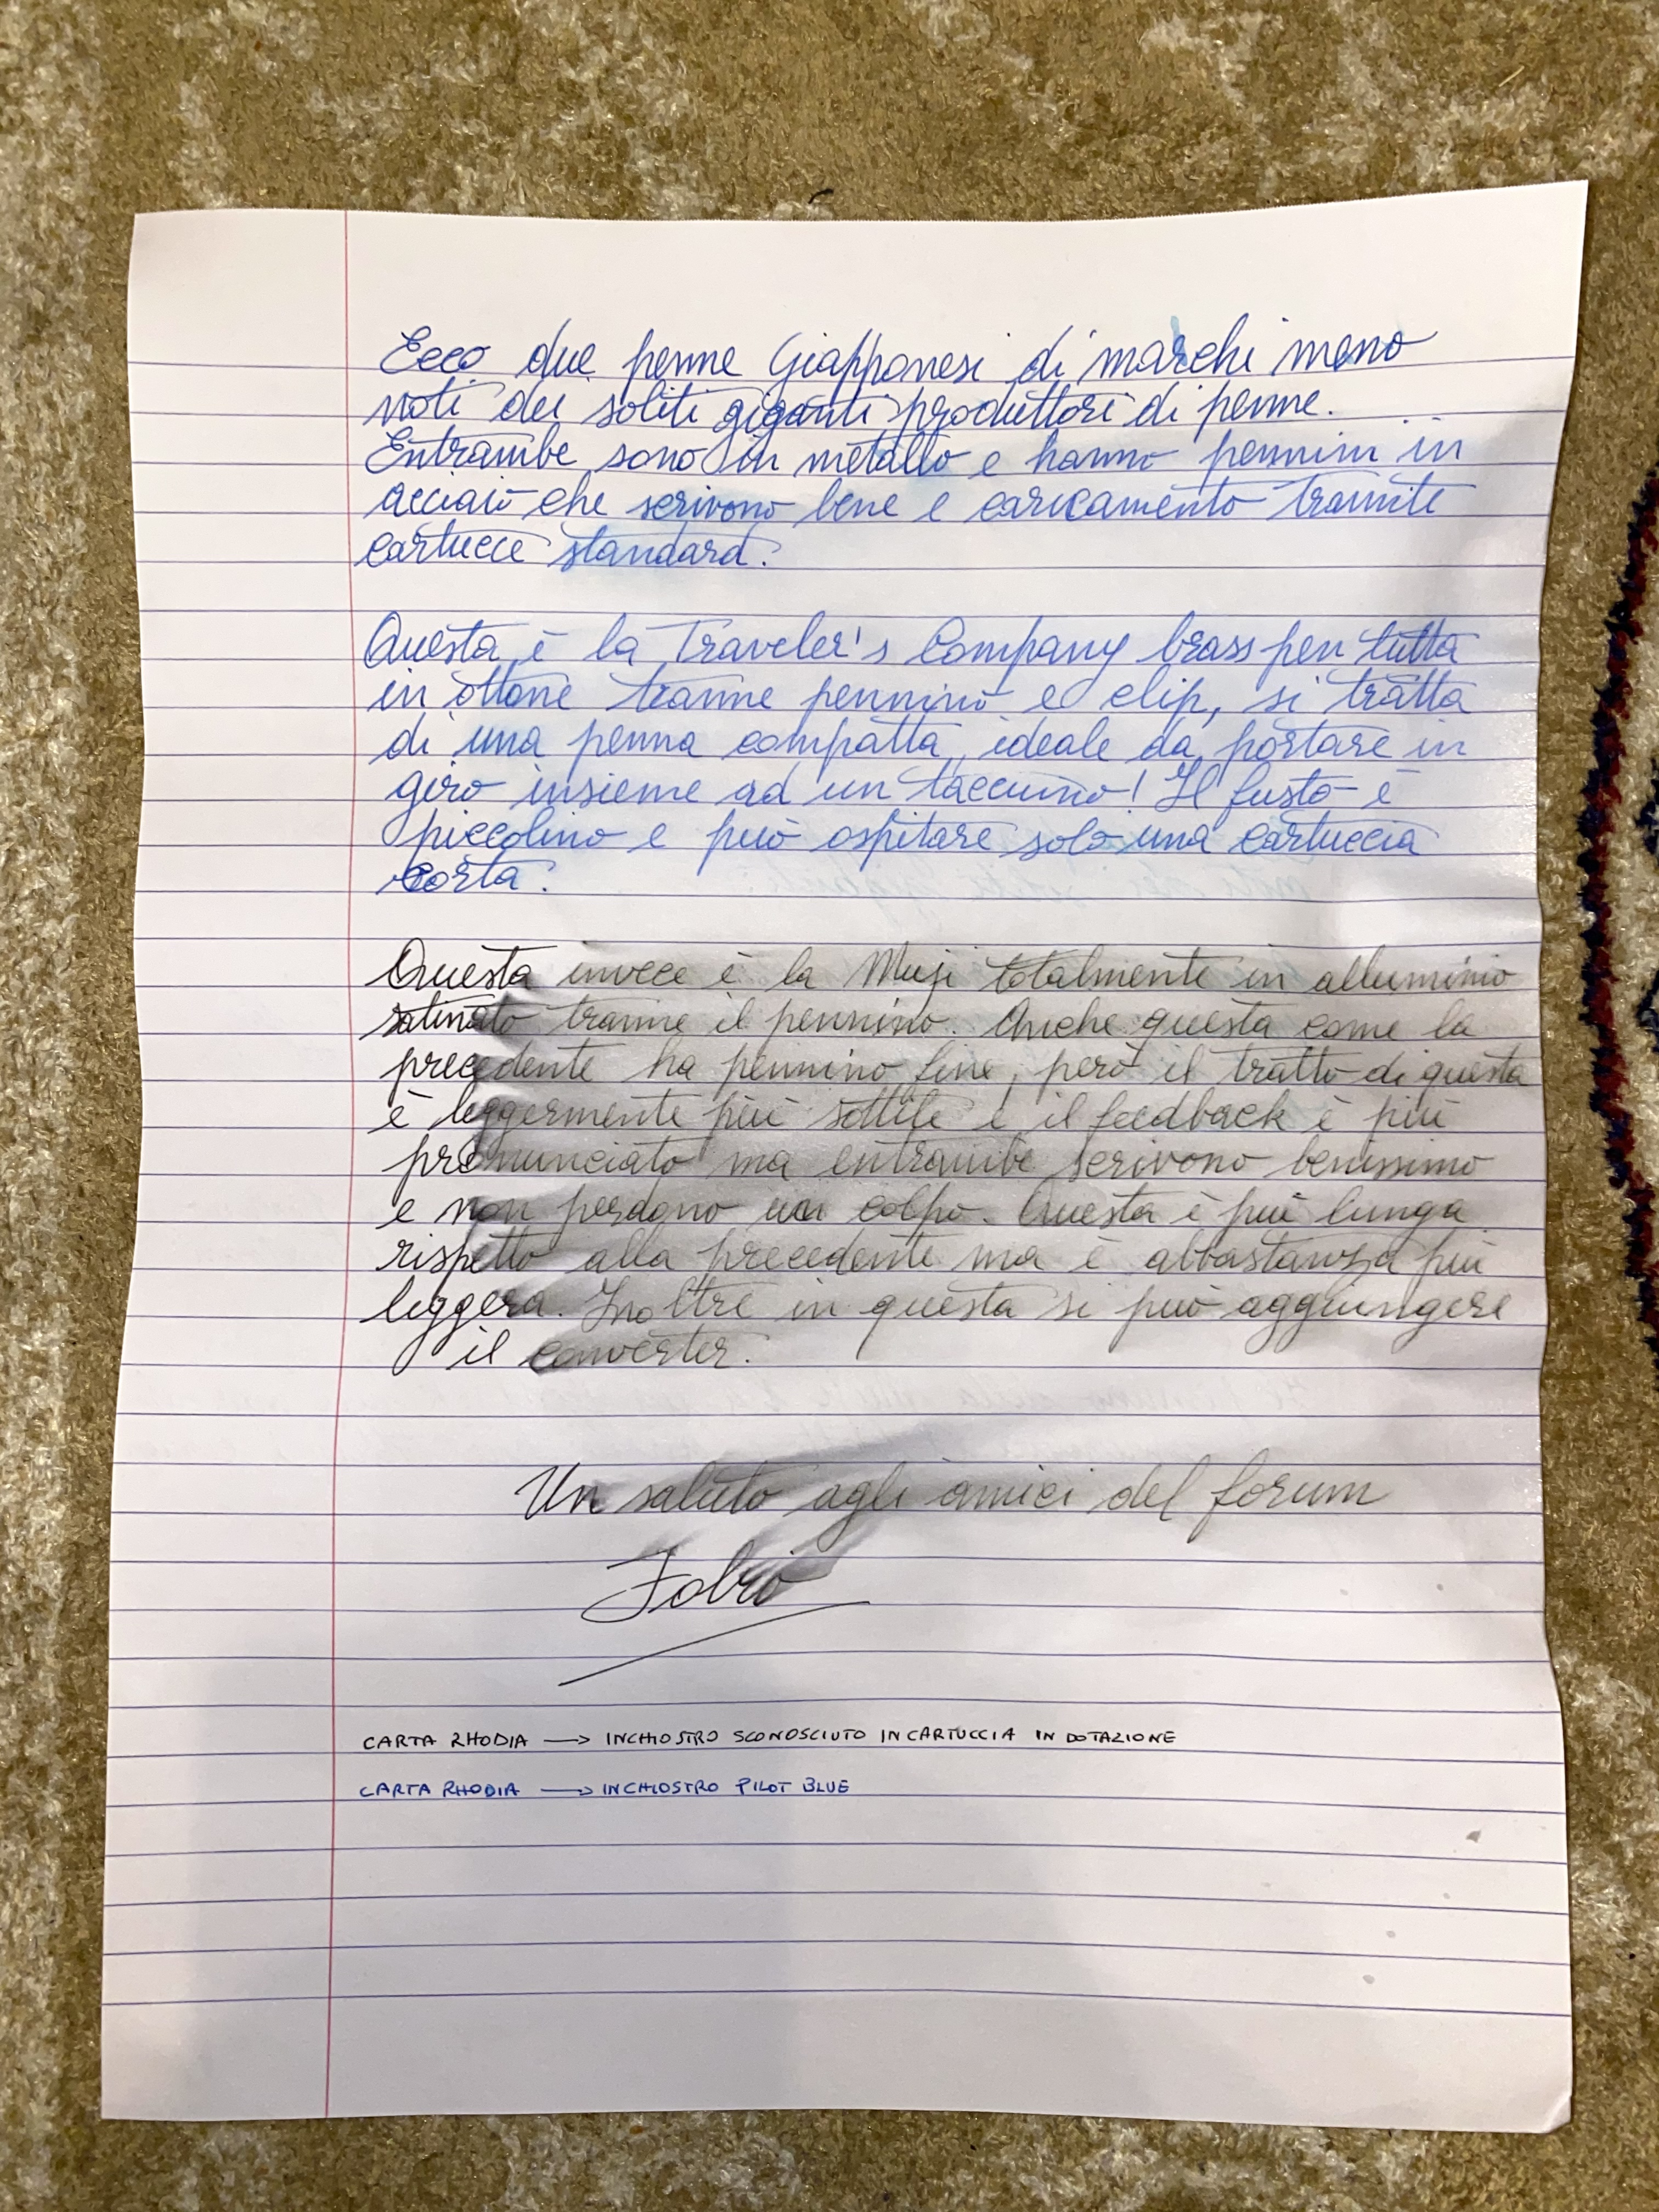 Ecco due penne Giapponesi di marchi meno
noti dei soliti giganti produttori di penne.
Entrambe sono in metallo e hanno pennini in
acciaio che scrivono bene e caricamento tramite
cartucce standard.
Questa è la Traveler's Company brass pen tutta
in ottone tranne pennino e clip, si tratta
di una penna compatta, ideale da portare in
giro insieme ad un taccuino! Il fusto è
piccolino e può ospitare solo una cartuccia
corta.
Questa invece è la Muji totalmente in alluminio
satinato tranne il pennino. Anche questa come la
precedente ha pennino fine, però il tratto di questa
è leggermente più sottile e il feedback è più
pronunciato ma entrambe scrivono benissimo
e non perdono un colpo. Questa è più lunga
rispetto alla precedente ma è abbastanza più
leggera. Inoltre in questa si può aggiungere
il converter.
Un saluto agli amici del forum
Fabio
CARTA RHODIA → INCHIOSTRO SCONOSCIUTO IN CARTUCCIA IN DOTAZIONE
CARTA RHODIA → INCHIOSTRO PILOT BLUE